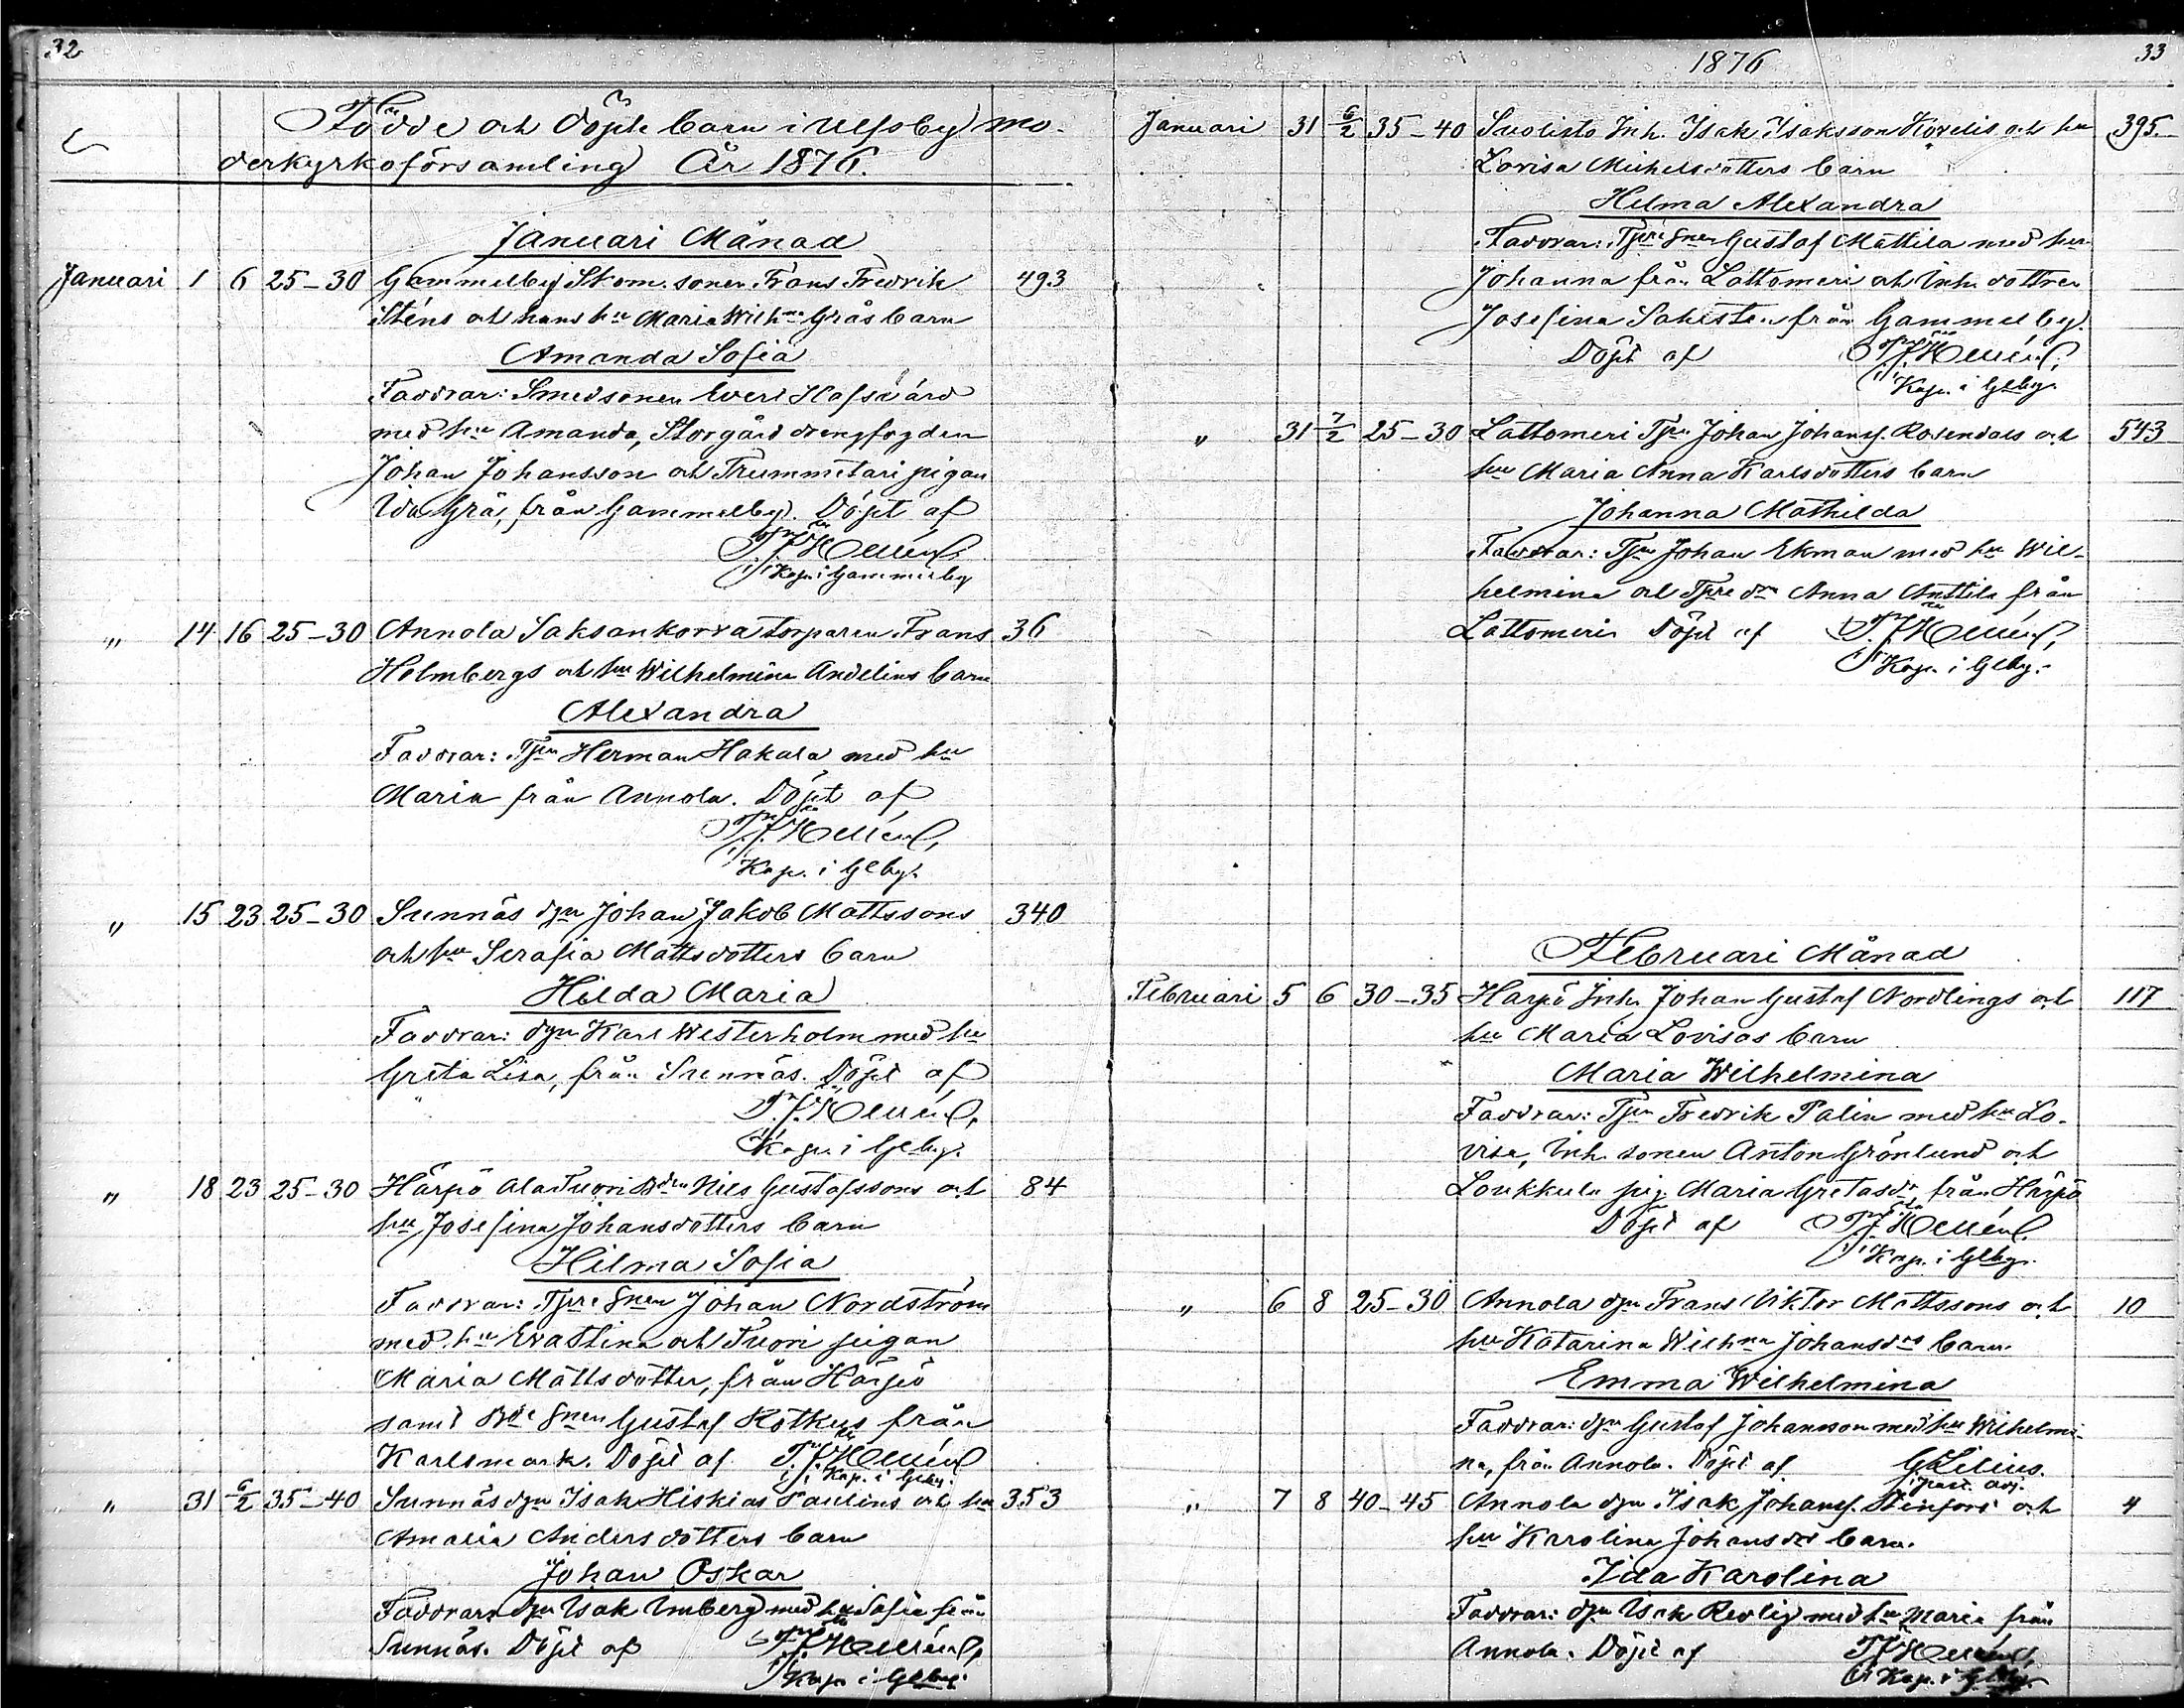 32
Födde och döpte barn i Ulfsby mo-
derkyrkoförsamling År 1876.
Januari Månad
Januari 1 6 25-30 Gammelby Skom. sonen Frans Fredrik 493
Sténs och hans hu Maria Wilhna Grås barn
Amanda Sofia
Faddrar: Smedsonen Evert Hafsvärd
med hu Amanda, Storgård drengfogden
Johan Johansson och Trummetari pigan
Ida Grå, från Gammelby. Döpt af
Kap. i Gammelby
" 14 16 25-30 Annola Saksankorva torparen Frans 36
Holmbergs och hu Wilhelmina Andelins barn
Alexandra
Faddrar: Tprn Herman Hakala med hu
Maria från Annola. Döpt af
Kap. i Glby.
" 15 23 25-30 Sunnäs dgn Johan Jakob Mattssons 340
och hu Serafia Mattsdotters barn
Hilda Maria
Faddrar: dgn Karl Westerholm med hu
Greta Lisa, från Sunnäs. Döpt af
Kapn i Glby.
" 18 23 25-30 Härpö Ala Tuori Bdn Nils Gustafssons och 84
hu Josefina Johansdotters barn
Hilma Sofia
Faddrar: Tpre snen Johan Nordström
med hu Eva Stina och Tuori pigan
Maria Mattsdotter, från Härpö
samt Bde snen Gustaf Rotkus från
Karlsmark. Döpt af
Kap. i Glby.
" 31 6/2 35-40 Sunnäs dgn Isak Hiskias Paulins och hu 353
Amalia Andersdotters barn
Johan Oskar
Faddrar: dgn Isak Imberg med hu Sofia från
Sunnäs. Döpt af
Kapn i Glby.
1876 33
Januari 31 6/2 35-40 Suolisto Inh. Isak Isaksson Kordelis och hu 395
Lovisa Michelsdotters barn
Helma Alexandra
Faddrar: Tpre snen Gustaf Mattila med hu
Johanna från Lattomeri och Inh. dottren
Josefina Sahlsten från Gammelby.
Döpt af
Kap. i Glby.
" 31 7/2 25-30 Lattomeri Tprn Johan Johanss. Rosendals och 543
hu Maria Anna Karlsdotters barn
Johanna Mathilda
Faddrar: Tprn Johan Ekman med hu Wil-
helmina och Tpre dn Anna Anttila från
Lattomeri Döpt af
Kapn i Glby.
Februari Månad
Februari 5 6 30-35 Harpö Inh. Johan Gustaf Nordlings och 117
hu Maria Lovisas barn
Maria Wilhelmina
Faddrar: Tprn Fredrik Palin med hu Lo-
visa, Inh. sonen Anton Grönlund och
Loukkula pig. Maria Gretasdr från Härpö
Döpt af
Kap. i Glby.
" 6 8 25-30 Annola dgn Frans Viktor Mattssons och 10
hu Katarina Wilhna Johansdrs barn.
Emma Wilhelmina
Faddrar: dgn Gustaf Johansson med hu Wilhelmi-
na, från Annola. Döpt af G Lilius.
Past. adj.
" 7 8 40-45 Annola dgn Isak Johanss. Stenfors och 4
hu Karolina Johansdrs barn.
Ida Karolina
Faddrar: dgn Isak Revlig med hu Maria från
Annola. Döpt af
Kap. i Glby.